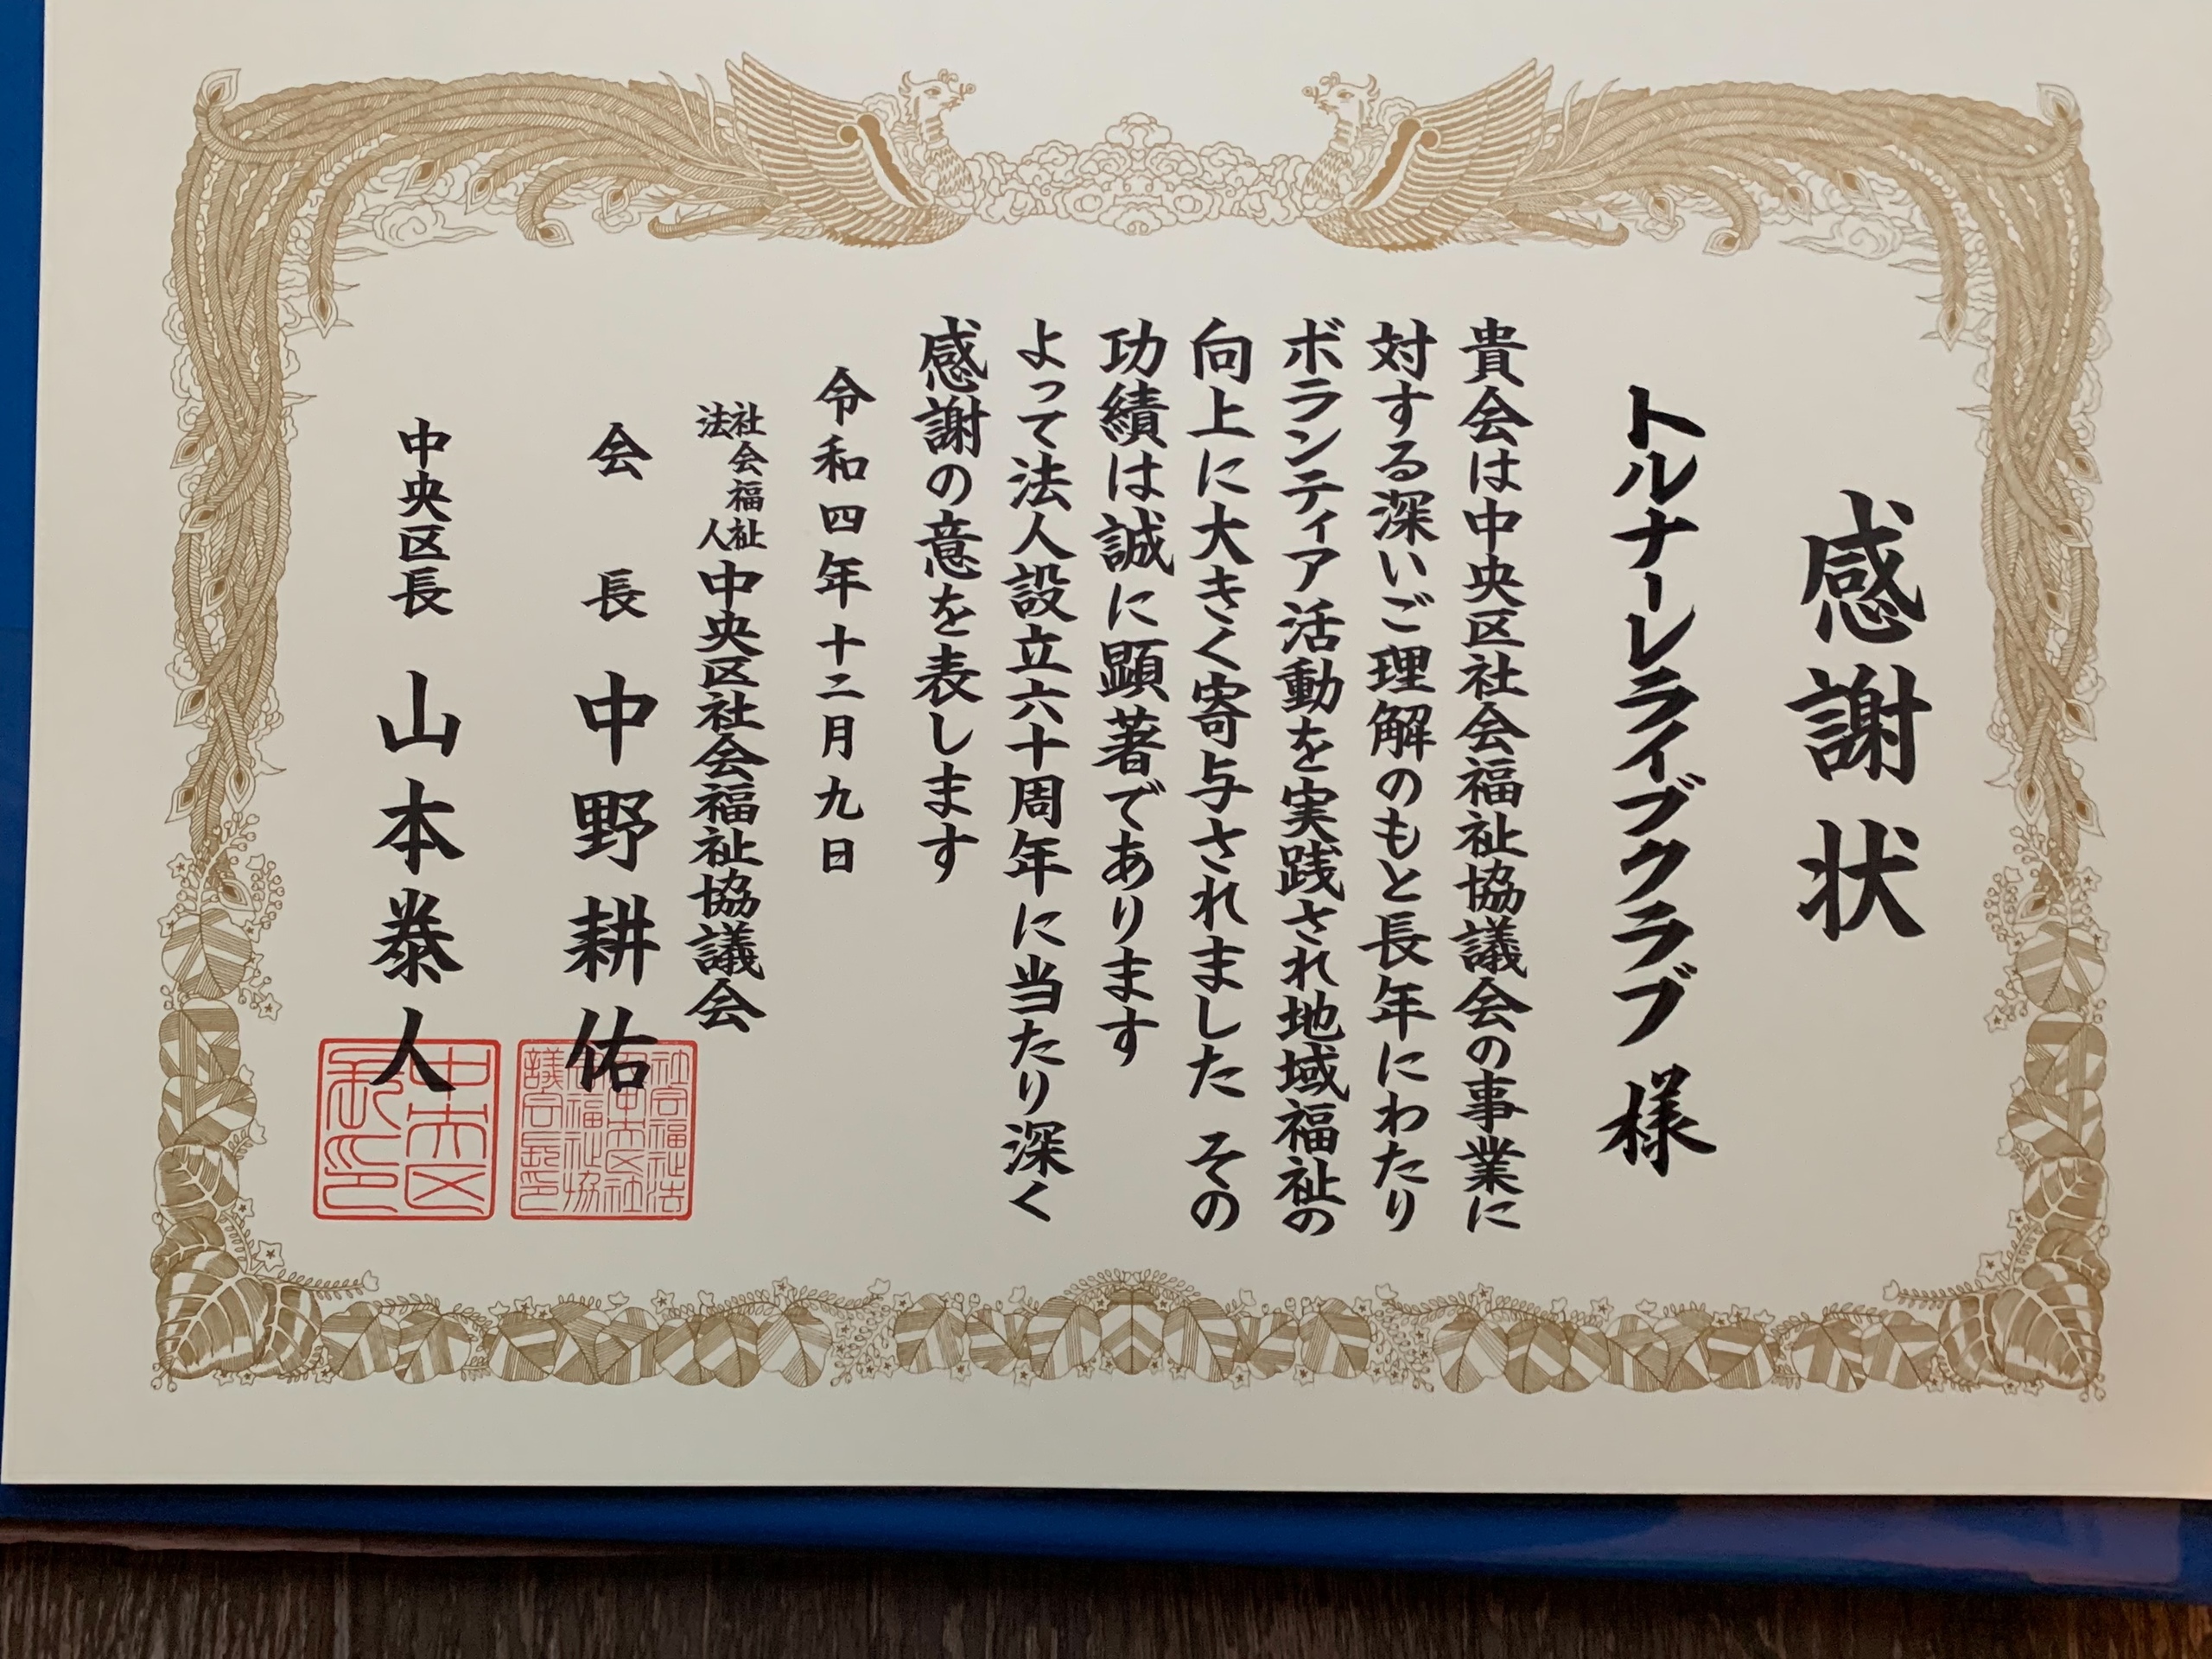 感謝状
トルナーレライブクラブ 様
貴会は中央区社会福祉協議会の事業に
対する深いご理解のもと長年にわたり
ボランティア活動を実践され地域福祉の
向上に大きく寄与されました その
功績は誠に顕著であります
よって法人設立六十周年に当たり深く
感謝の意を表します
令和四年十二月九日
社会福祉法人 中央区社会福祉協議会
会長 中野耕佑
中央区長 山本泰人
社会福祉法
人中央区社
会福祉協
議会長印
中央区
長印